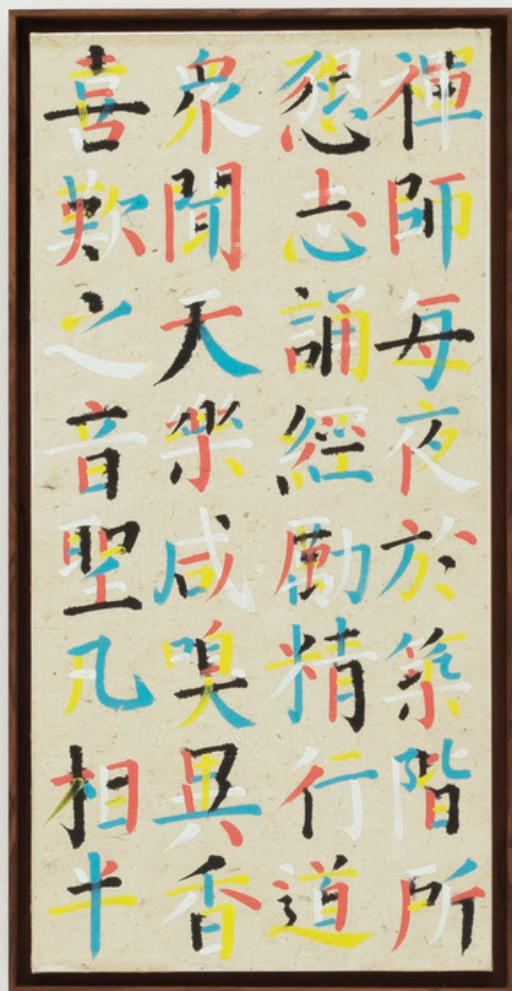 禪師每夜於築階所
懇志誦經勵精行道
衆聞天樂咸嗅異香
喜歎之音聖凡相半